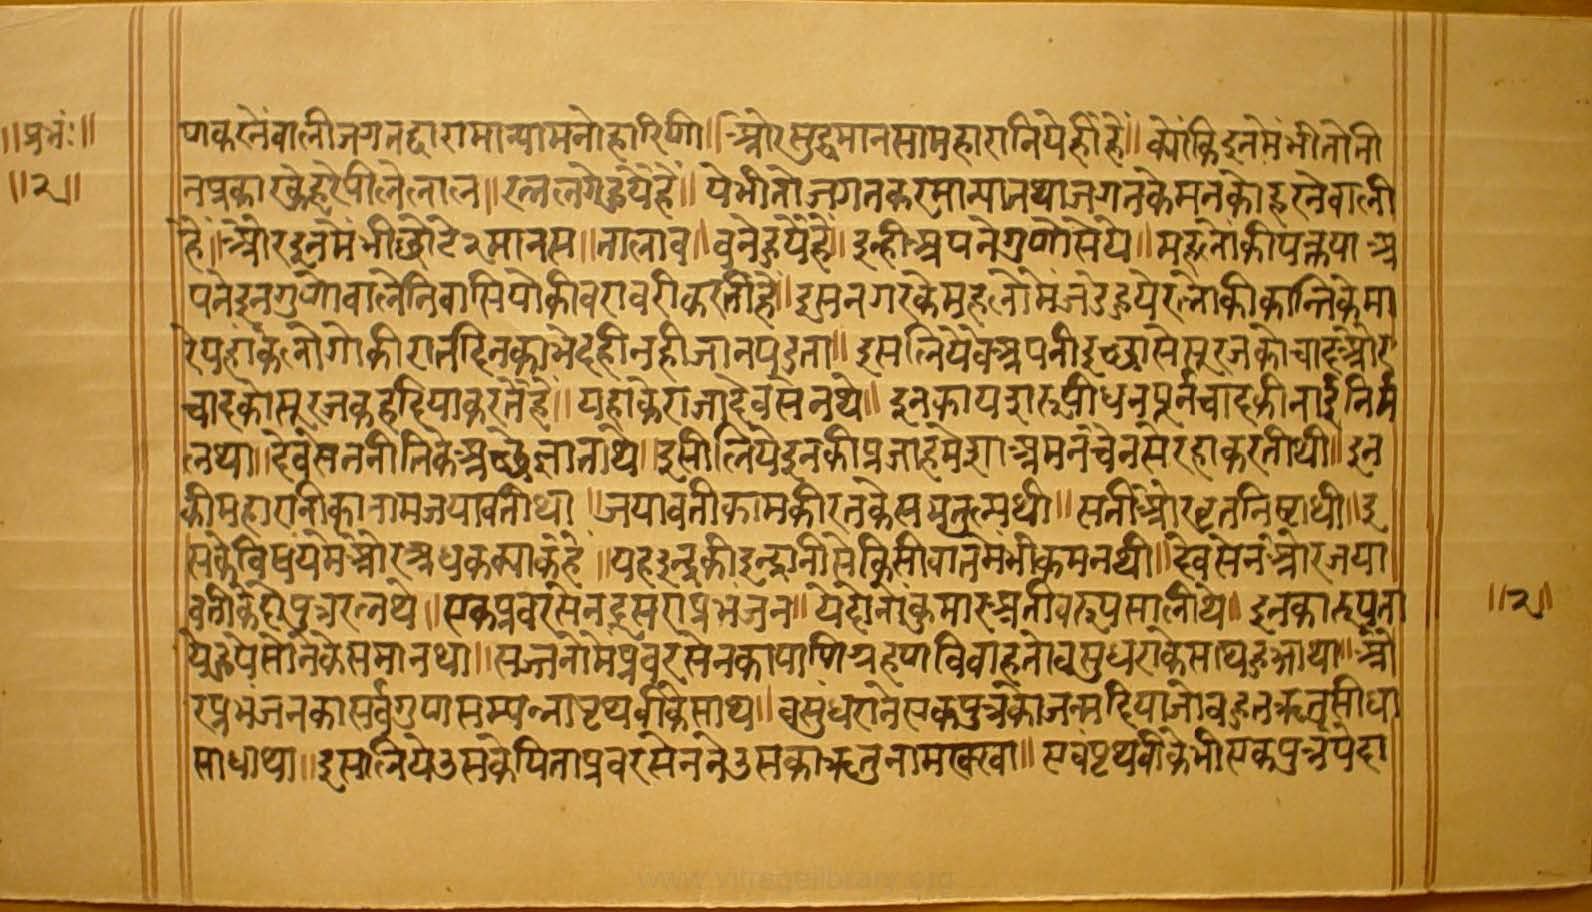 ॥प्रभं:॥
॥२॥
णकरनेवाली जगतद्वारा मान्या मनोहारिणी॥ और सुद्ध मानसा महारानिये हीं हैं॥ क्योंकि इनमें भी तो ती
न प्रकार के हरे पीले लाल॥ रत्न लगे हुये हैं॥ ये भी तो जगतकर मान्या तथा जगतके मनको हरनेवाली
हैं॥ और इनमें भी छोटे २ मानस॥ तालाव॥ वने हुये हैं॥ इन्ही अपने गुणों से ये॥ महलों की पक्तया अ
पने इन गुणोंवाले निवासियों की वरावरी करती हैं॥ इस नगरके महलों में जडे हुये रत्नों की कान्ति के मा
रे यहां के लोगों की रात दिन का भेद ही नही जान पडता॥ इसलिये वे अपनी इच्छा से सूरज को चाद और
चाद को सूरज कह दिया करते हैं॥ यहा के राजा देवसेन थे॥ इनका यश रुपी धन पूर्न चाद की नाईं निर्म
ल था॥ देवसेन नीति के अच्छे ज्ञाता थे॥ इसी लिये इनकी प्रजा हमेशा अमन चेन से रहा करती थी॥ इन
की महारानी का नाम जयावती था॥ जयावती काम की रतन के समतुल्य थी॥ सती और वृतनिष्टा थी॥ इ
सके विषय में और अधक क्या कहें॥ यह इन्द्र की इन्द्रानी से किसी वात में भी कम न थी॥ देवसेन और जया
वती के दो पुत्र रत्न थे॥ एक प्रवरसेन दूसरा प्रभंजन॥ ये दोनों कुमार अतीव रुपसाली थे॥ इनका रुप ता
ये हुये सोने के समान था॥ सज्जनों में प्रवरसेन का पाणिग्रहण विवाह तो वसुधरा के साथ हुआ था॥ औ
र प्रभंजन का सर्व गुण सम्पन्ना पृथवी के साथ॥ वसुंधरा ने एक पुत्र को जन्म दिया जो वहुत ऋतु सीधा
साधा था॥ इसलिये उसके पिता प्रवरसेन ने उसका ऋतु नाम रक्खा॥ एवं पृथवी के भी एक पुत्र पेदा
॥२॥
www.vitragelibrary.org